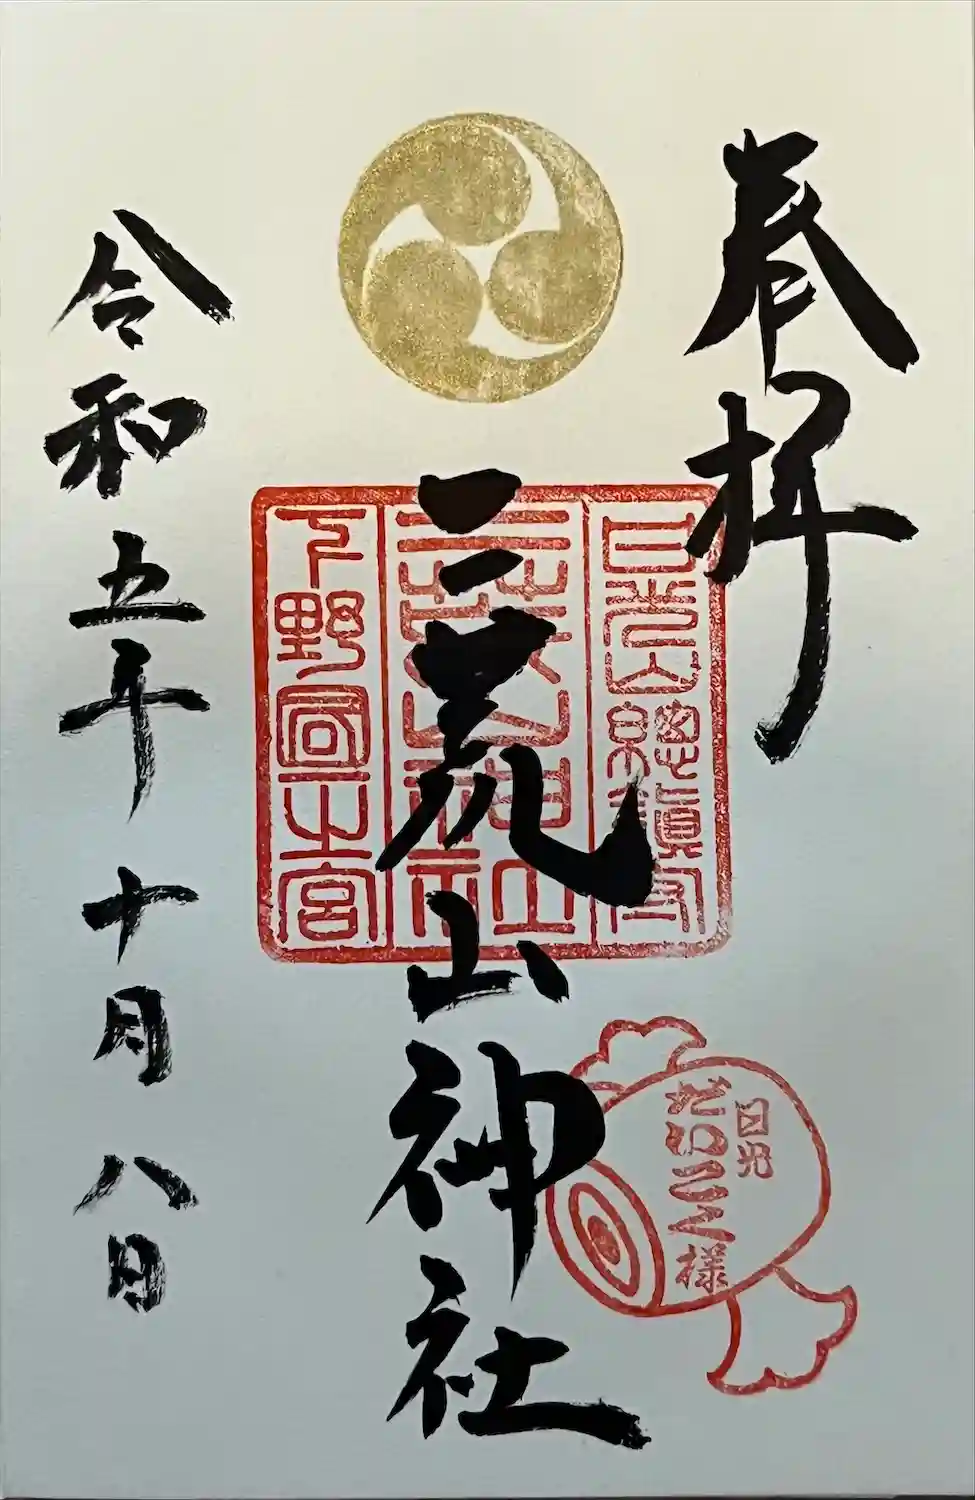 奉拝
日光山總鎮守
二荒山神社
下野國一之宮
二荒山神社
日光
だいこく様
令和五年 十月 八日